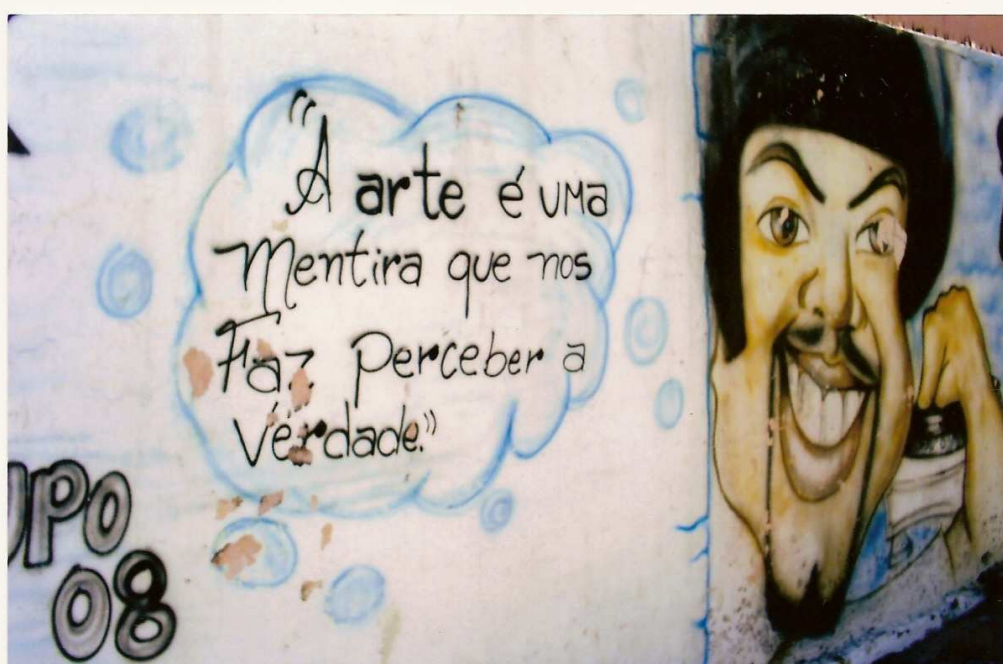 "A arte é uma
Mentira que nos
Faz perceber a
verdade."
UPO
08